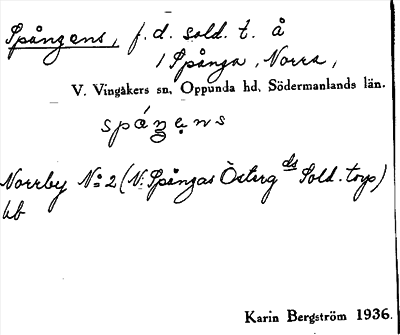 Spångens, f.d. sold. t. å
/ Spånga, Norra,
V. Vingåkers sn, Oppunda hd, Södermanlands län.
Norrby No 2 (N: Spångas Österg ds Sold. torp)
hb
Karin Bergström 1936.